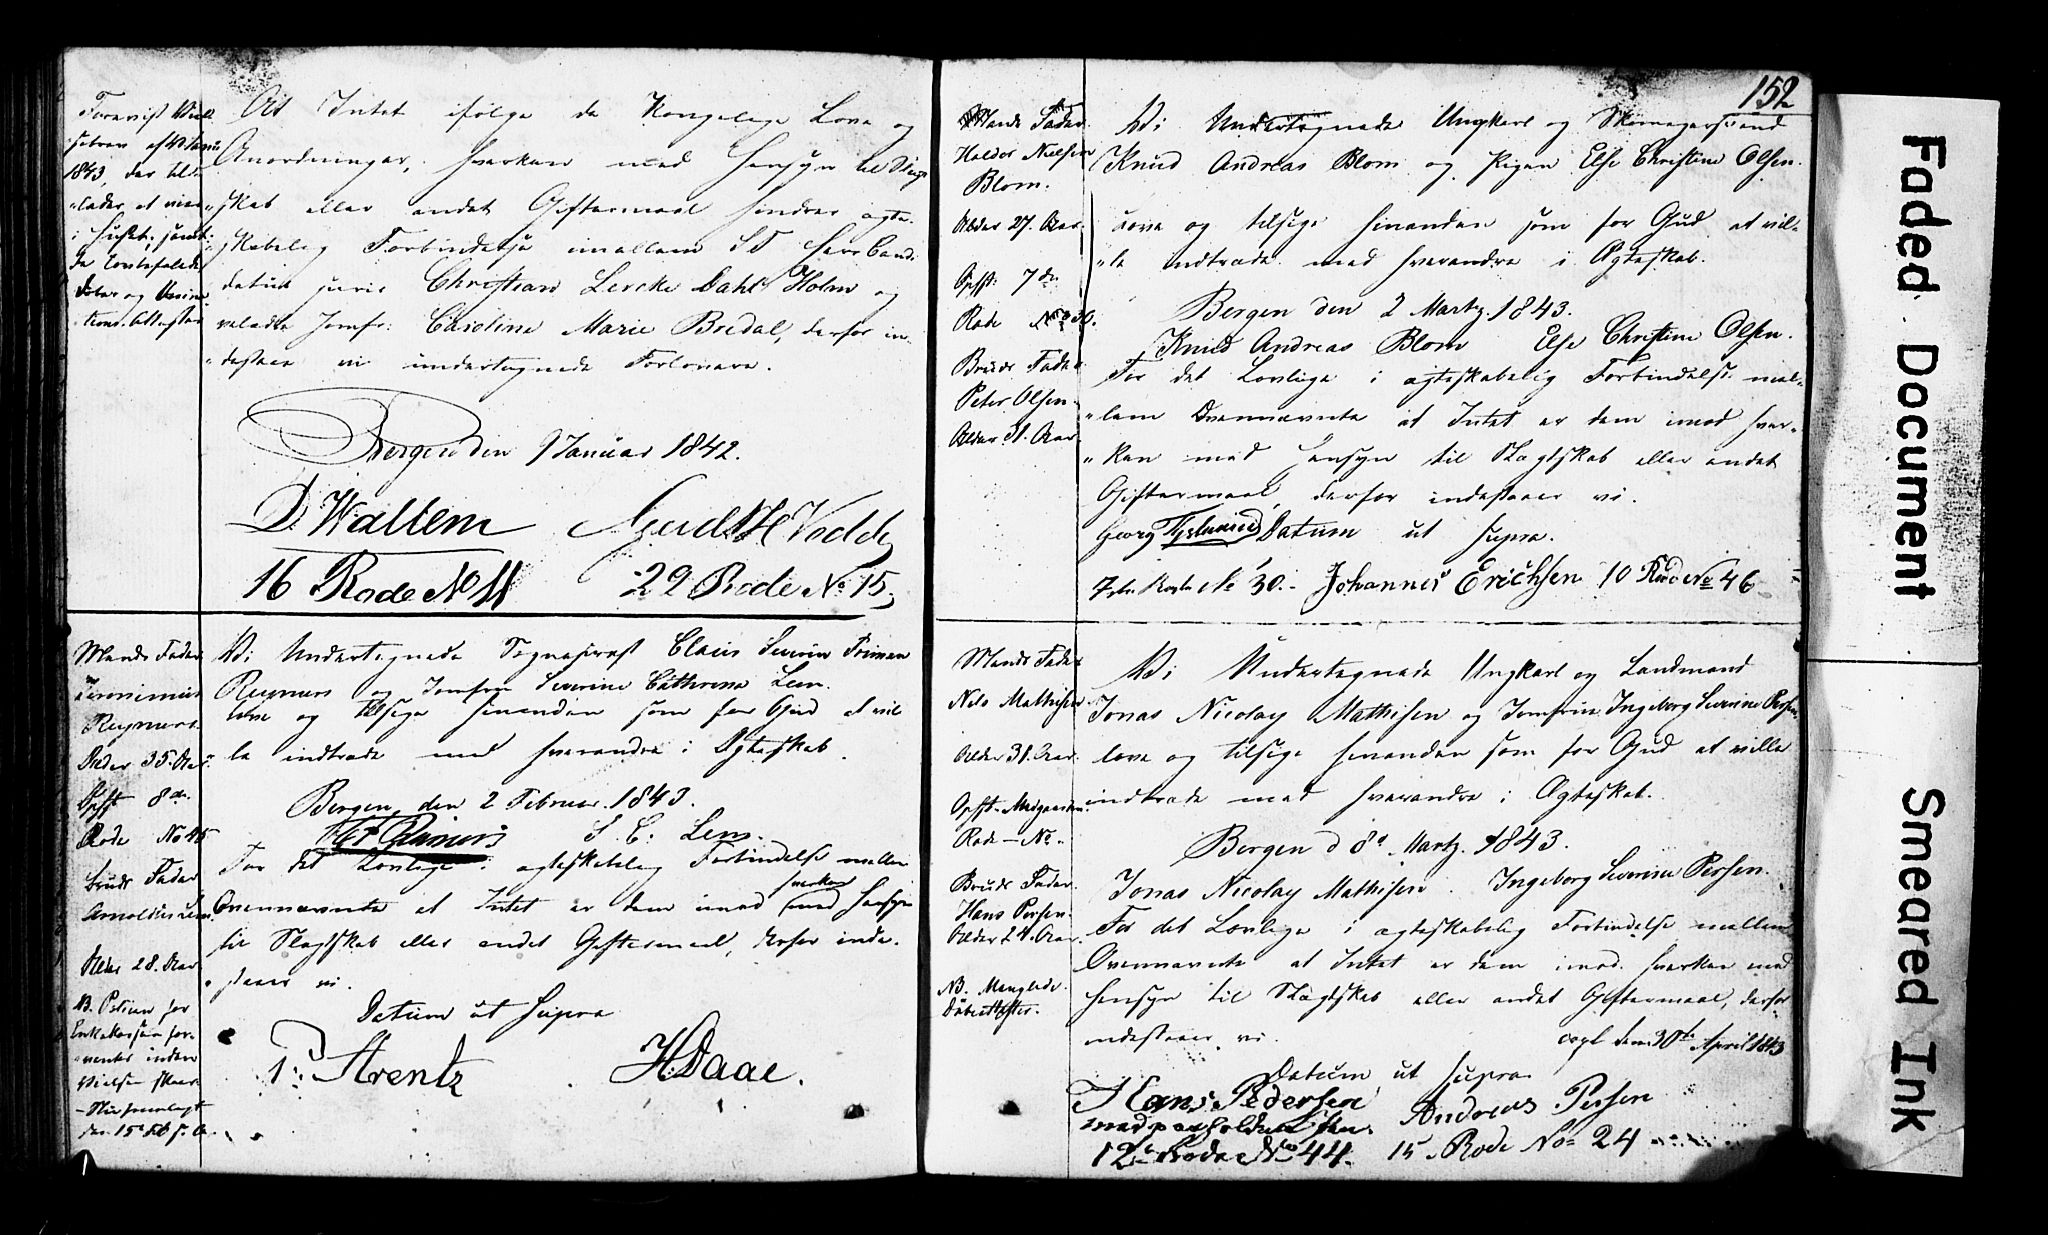 Foreviist Viel
1843, der tilde
i Huset, samt
At Intet ifølge de Kongelige Love og
Anordninger, hverken med Hensyn til Slægt
skab eller andet Giftermaal hindrer ægte
skabelig Forbindelse imellem Herr Candi
datus juris Christian Lercke Dahl Holm og
Jomfr: Caroline Marie Bredal, derfor in
destaae vi undertegnede Forlovere.
Bergen den 9 Januar 1842.
D. Wallem
16 Rode No 11
22 Rode No 15
Mands Fader
Reymers.
Alder 35. Aar.
Opfst 8de
Rode No 45
Bruds Fader
Arnoldus Lem.
Alder 28. Aar
Vi Undertegnede Claus Severin Friman
Reymers og Jomfru Severine Cathrene Lem.
love og tilsige hinanden som for Gud at vil
le indtræde med hverandre i Ægteskab.
Bergen den 2 Februar 1843.
S. C. Lem.
For det Lovlige i ægteskabelig Forbindelse mellem
Ovennævnte at Intet er dem imod hverken med Hensyn
til Slægtskab eller andet Giftermaal, derfor inde-
staaer vi.
Datum ut supra
Arentz
H. Daae.
152
Mands Fader
Halder Nielsen
Blom.
Alder 27. Aar.
Opfst. 7de
Rode No 30.
Bruds Fader
Peter Olsen.
Alder 31. Aar.
Vi Undertegnede Ungkarl og Skomagersvend
Knud Andreas Blom og Pigen Else Christine Olsen.
love og tilsige hinanden som for Gud at vil-
"le indtræde med hverandre i Ægteskab.
Bergen den 2 Martz. 1843.
Knud Andreas Blom Else Christine Olsen.
For det Lovlige i ægteskabelig Forbindelse mel-
"lem Ovennævnte at Intet er dem imod hver-
"ken med Hensyn til Slægtskab eller andet
Giftermaal, derfor indestaaer vi.
Georg Datum ut supra.
7de Rode No 30. Johannes Erichsen 10 Rode No 46
Mands Fader
Nils Mathisen
Alder 31. Aar.
Opfst.
Rode — No
Bruds Fader.
Hans Persen.
Alder 24. Aar.
NB. Manglede
Døbeattester.
Vi Undertegnede Ungkarl og Landmand
Jonas Nicolay Mathisen og Jomfrue Ingeborg Severine Persen
love og tilsige hinanden som for Gud at ville
indtræde med hverandre i Ægteskab.
Bergen d 8de Martz. 1843.
Jonas Nicolay Mathisen. Ingeborg Severine Persen.
For det Lovlige i ægteskabelig Forbindelse mellem
Ovennævnte at Intet er dem imod hverken med
Hensyn til Slægtskab eller andet Giftermaal, derfor
indestaaer vi. copl. den 30te April 1843
Datum ut supra
Hans Pedersen Andreas Persen
med paaholden Pen.
12te Rode No 44. 15 Rode No 24
Faded Document
Smeared Ink